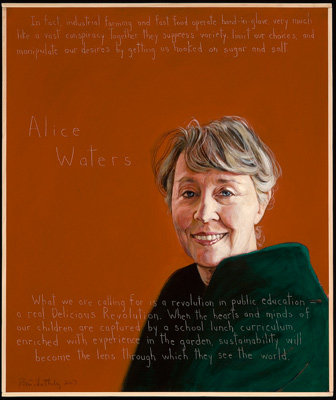 In fact, industrial farming and fast food operate hand-in-glove very much
like a vast conspiracy. Together they suppress variety, limit our choices, and
manipulate our desires by getting us hooked on sugar and salt.
Alice
Waters
What we are calling for is a revolution in public education –
a real Delicious Revolution. When the hearts and minds of
our children are captured by a school lunch curriculum
enriched with experience in the garden, sustainability will
become the lens through which they see the world.